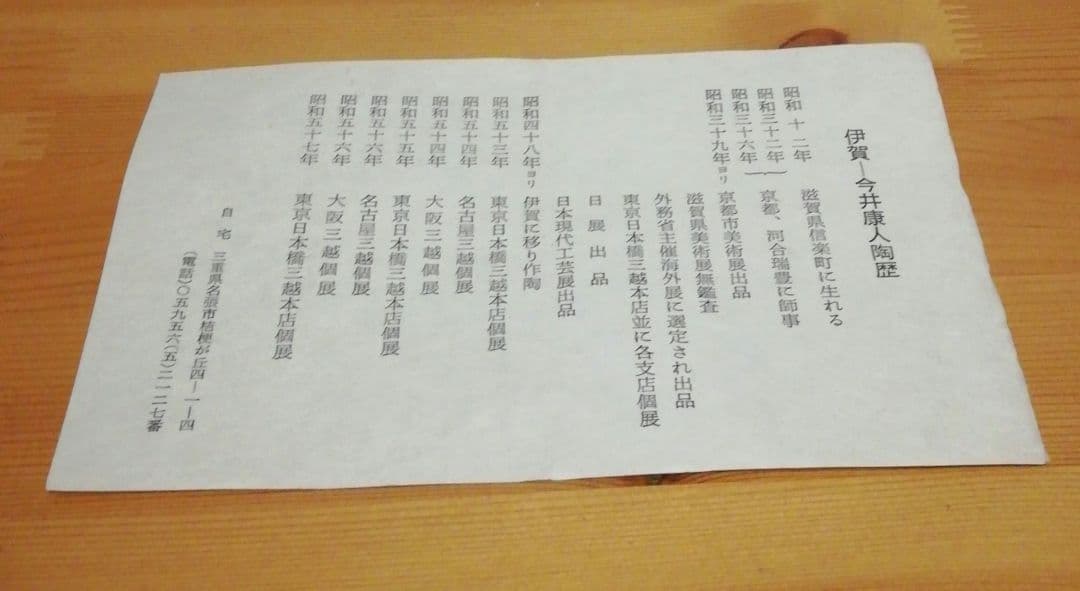 伊賀―今井康人陶歴
昭和十二年 滋賀県信楽町に生れる
昭和三十二年
昭和三十六年 京都、河合瑞豊に師事
昭和三十九年ヨリ 京都市美術展出品
滋賀県美術展無鑑査
外務省主催海外展に選定され出品
東京日本橋三越本店並に各支店個展
日展出品
日本現代工芸展出品
昭和四十八年ヨリ 伊賀に移り作陶
昭和五十三年 東京日本橋三越本店個展
昭和五十四年 名古屋三越個展
昭和五十四年 大阪三越個展
昭和五十五年 東京日本橋三越本店個展
昭和五十六年 名古屋三越個展
昭和五十六年 大阪三越個展
昭和五十七年 東京日本橋三越本店個展
自宅 三重県名張市桔梗が丘四―一―四
(電話)〇五九五六(五)二一二七番